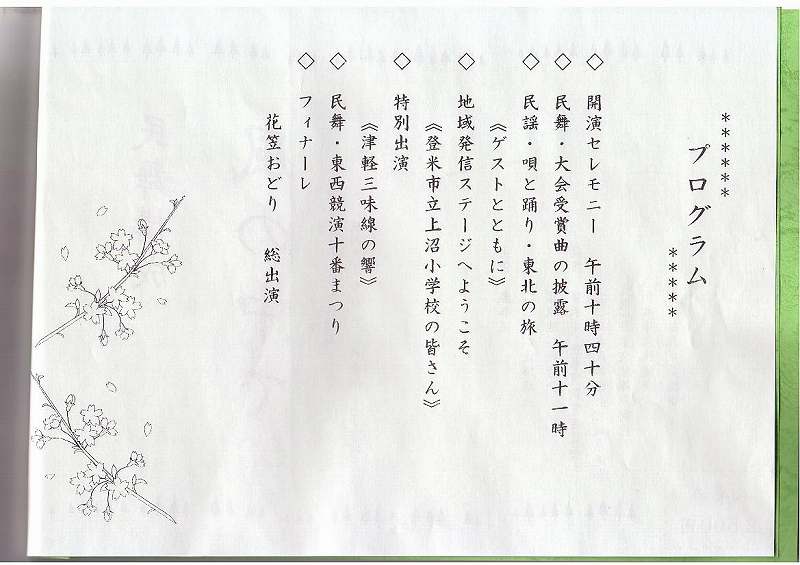 ******
プログラム
*****
◇ 開演セレモニー 午前十時四十分
◇ 民舞・大会受賞曲の披露 午前十一時
◇ 民謡・唄と踊り・東北の旅
《ゲストとともに》
◇ 地域発信ステージへようこそ
《登米市立上沼小学校の皆さん》
◇ 特別出演
《津軽三味線の響》
◇ 民舞・東西競演十番まつり
◇ フィナーレ
花笠おどり 総出演